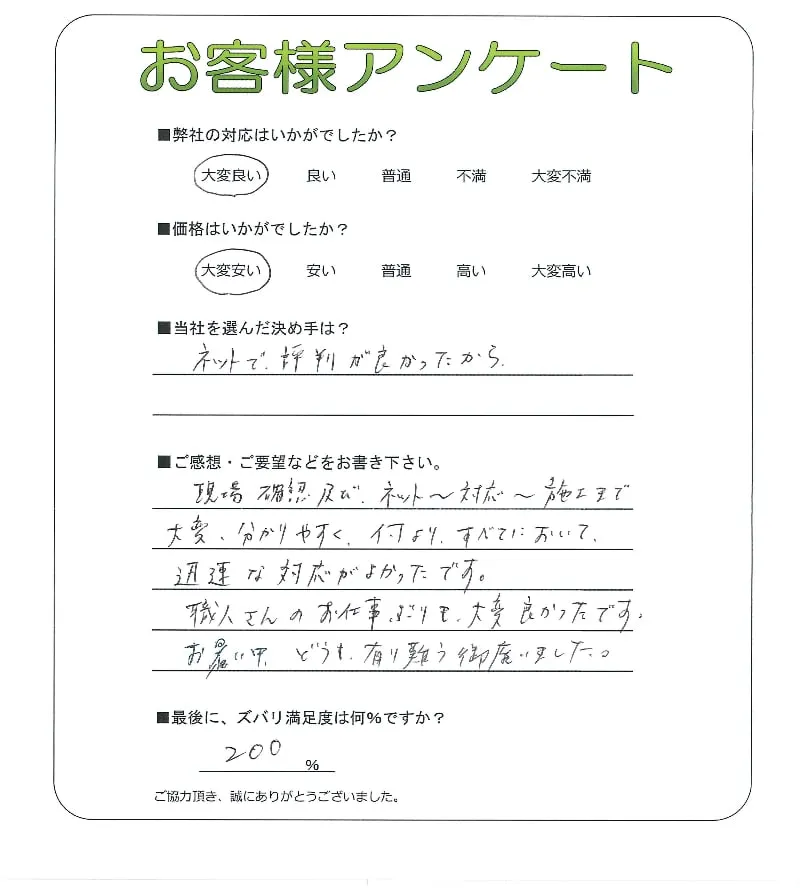 お客様アンケート
■弊社の対応はいかがでしたか？
大変良い 良い 普通 不満 大変不満
■価格はいかがでしたか？
大変安い 安い 普通 高い 大変高い
■当社を選んだ決め手は？
ネットで、評判が良かったから、
■ご感想・ご要望などをお書き下さい。
現場確認及び、ネット～対応～施工まで
大変、分かりやすく、何より、すべてにおいて、
迅速な対応がよかったです。
職人さんのお仕事ぶりも、大変良かったです。
お暑い中、どうも、有り難う御座いました。
■最後に、ズバリ満足度は何%ですか？
200 %
ご協力頂き、誠にありがとうございました。